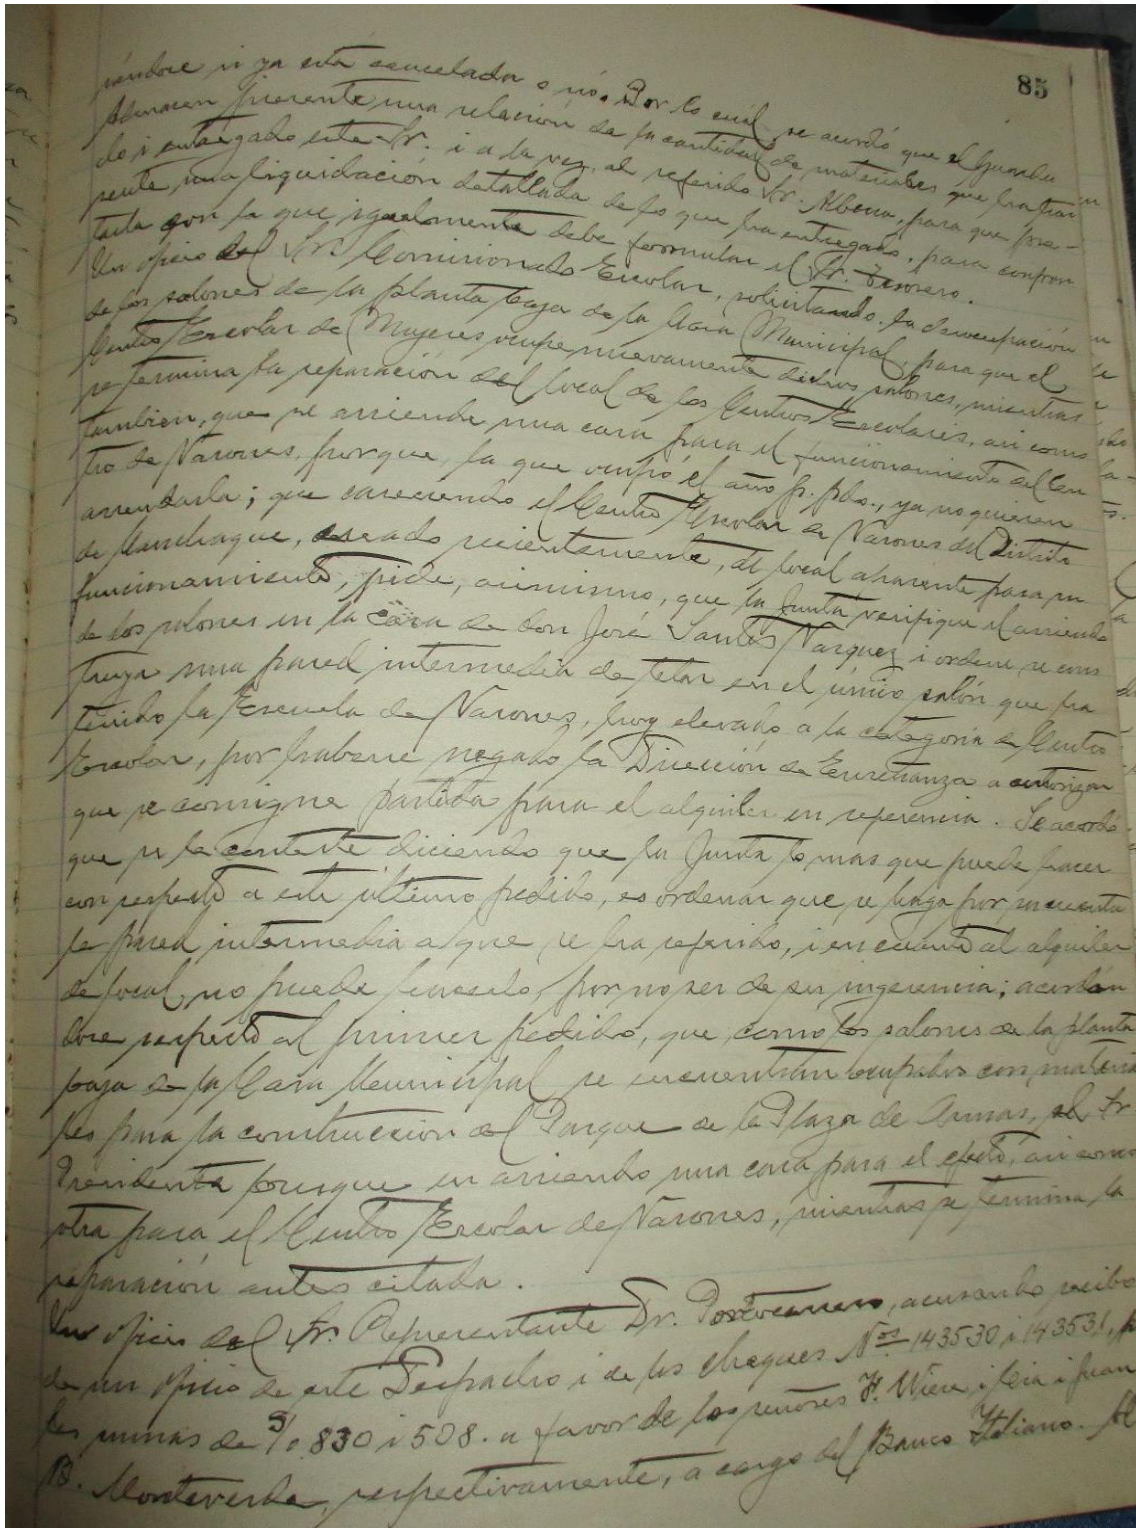 85
riéndose si ya está cancelada o nó. Por lo cuál se acordó que el Guarda
Almacen presente una relación de la cantidad de materiales que ha
do i entregado este Sr. i a la vez, al referido Sr. para que pre-
sente una liquidación detallada de lo que ha entregado, para confron
tarla con la que igualmente debe formular el Sr. Tesorero.
Un oficio del Sr. Comisionado Escolar, solicitando la desocupación
de los salones de la planta baja de la Casa Municipal, para que el
Centro Escolar de Mujeres ocupe nuevamente dichos salones, mientras
se termina la reparación del local de los Centros Escolares, asi como
tambien, que se arriende una casa para el funcionamiento del Cen
tro de Varones, porque, la que ocupó el año p. pdo., ya no quieren
arrendarla; que careciendo el Centro Escolar de Varones del Distrito
de creado recientemente, de local aparente para su
funcionamiento, pide, asimismo, que la Junta verifique el arriendo
de dos salones en la casa de don José Santos Vasquez i ordene se cons
truya una pared intermedia de telar en el único salón que ha
tenido la Escuela de Varones, hoy elevado a la categoría de Centro
Escolar, por haberse negado la Dirección de Enseñanza a autorizar
que se consigne partida para el alquiler en referencia. Se acordó
que se le conteste diciendo que la Junta lo mas que puede hacer
con respecto a este último pedido, es ordenar que se haga por su cuenta
la pared intermedia a que se ha referido, i en cuanto al alquiler
de local, no puede hacerlo, por no ser de su ingerencia; acordán
dose respecto al primer pedido, que, como los salones de la planta
baja de la Casa Municipal se encuentran ocupados con materia
les para la construccion del Parque de la Plaza de Armas, el Sr
Presidente busque en arriendo una casa para el efecto, asi como
otra para el Centro Escolar de Varones, mientras se termina la
reparación antes citada.
Un oficio del Sr. Representante Dr. acusando recibo
de un oficio de este Despacho i de los cheques Nos. 143530 i 143531, p
las sumas de S/o 830 i 508. a favor de los señores F. Wiese i Cia i Juan
B. Monteverde, respectivamente, a cargo del Banco Italiano. Al